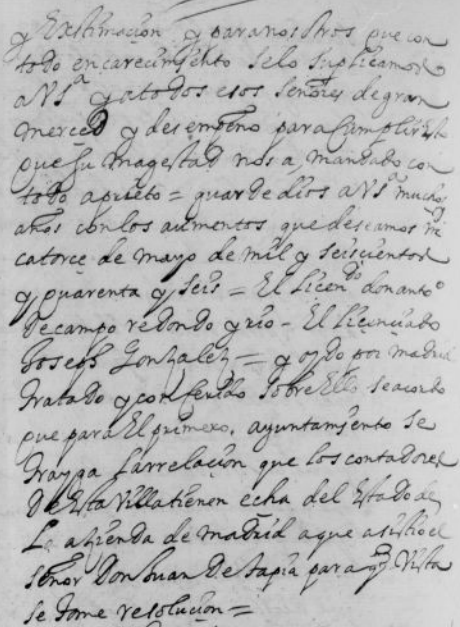 y Extimacion y para nosotros que con
todo encarecimiento se lo suplicamos
a Vsª y a todos esos señores de gran
merced y desempeño para cumplir esto
que su magestad nos a mandado con
todo aprieto = guarde dios a Vsª muchos
años con los aumentos que deseamos
catorce de mayo de mil y seiscientos
y quarenta y seis = El Licendo don antoº
de campo redondo y rio - El Licenciado
Joseph Gonzalez = y oydo por madrid
tratado y conferido sobre Ello se acordo
que para El primero. ayuntamiento se
trayga Larrelacion que los contadores
De esta Villa tienen echa del Estado de
La açienda de madrid a que asistio el
señor Don Juan De tapia para q Vista
se tome resolucion =